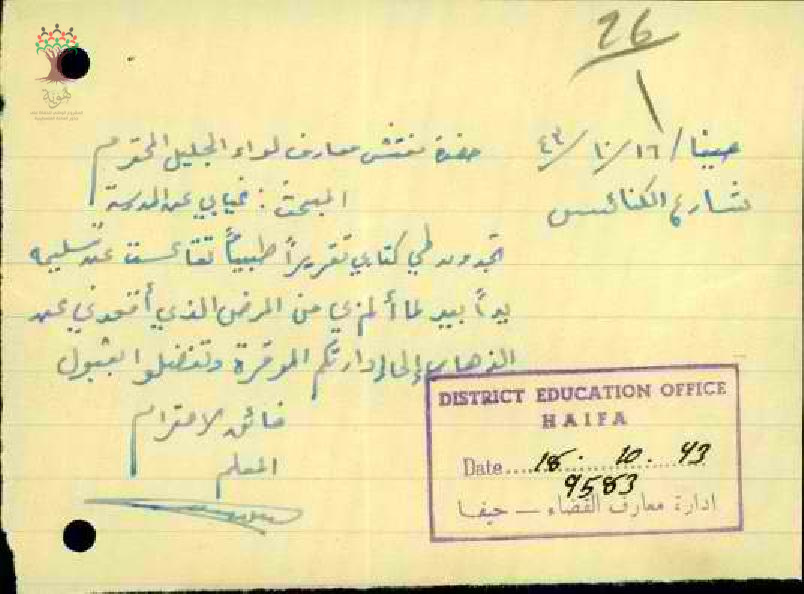 26
حيفا / ١٦ / ١٠ / ٤٣
شارع الكنائس
حضرة مفتش معارف لواء الجليل المحترم
المبحث : غيابي عن المدرسة
تجدون طي كتابي تقريراً طبياً تقاعست عن تسليمه
يداً بيد لما ألم بي من المرض الذي أقعدني عن
الذهاب إلى إدارتكم الموقرة وتفضلوا بقبول
فائق الاحترام
المعلم
DISTRICT EDUCATION OFFICE
HAIFA
Date 18. 10. 43
9583
ادارة معارف القضاء - حيفا
هوية